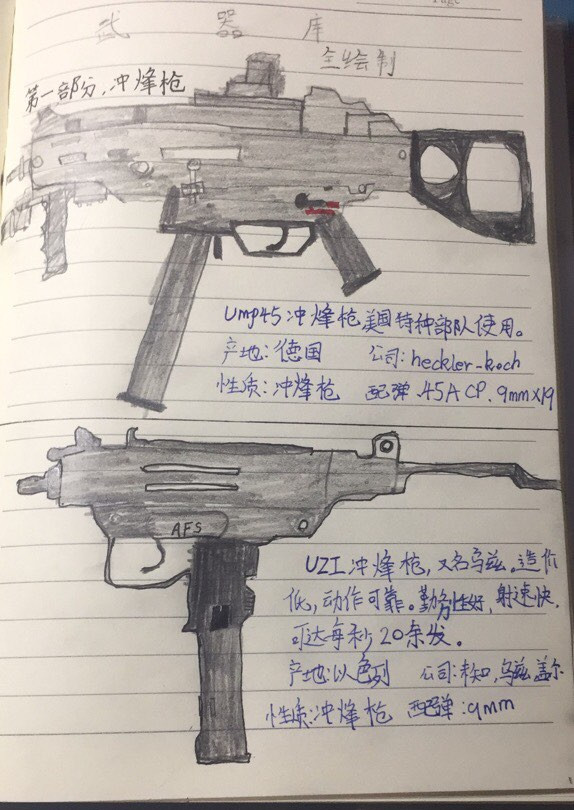 武器库
全绘制
第一部分,冲烽枪
Ump45冲烽枪美国特种部队使用。
产地:德国 公司:heckler-koch
性质:冲烽枪 配弹.45ACP.9mm×19
AFS
UZI冲烽枪,又名乌兹。造价
低,动作可靠。勤务性好,射速快,
可达每秒20余发。
产地:以色列 公司:未知,乌兹盖尔
性质:冲烽枪 配弹:9mm